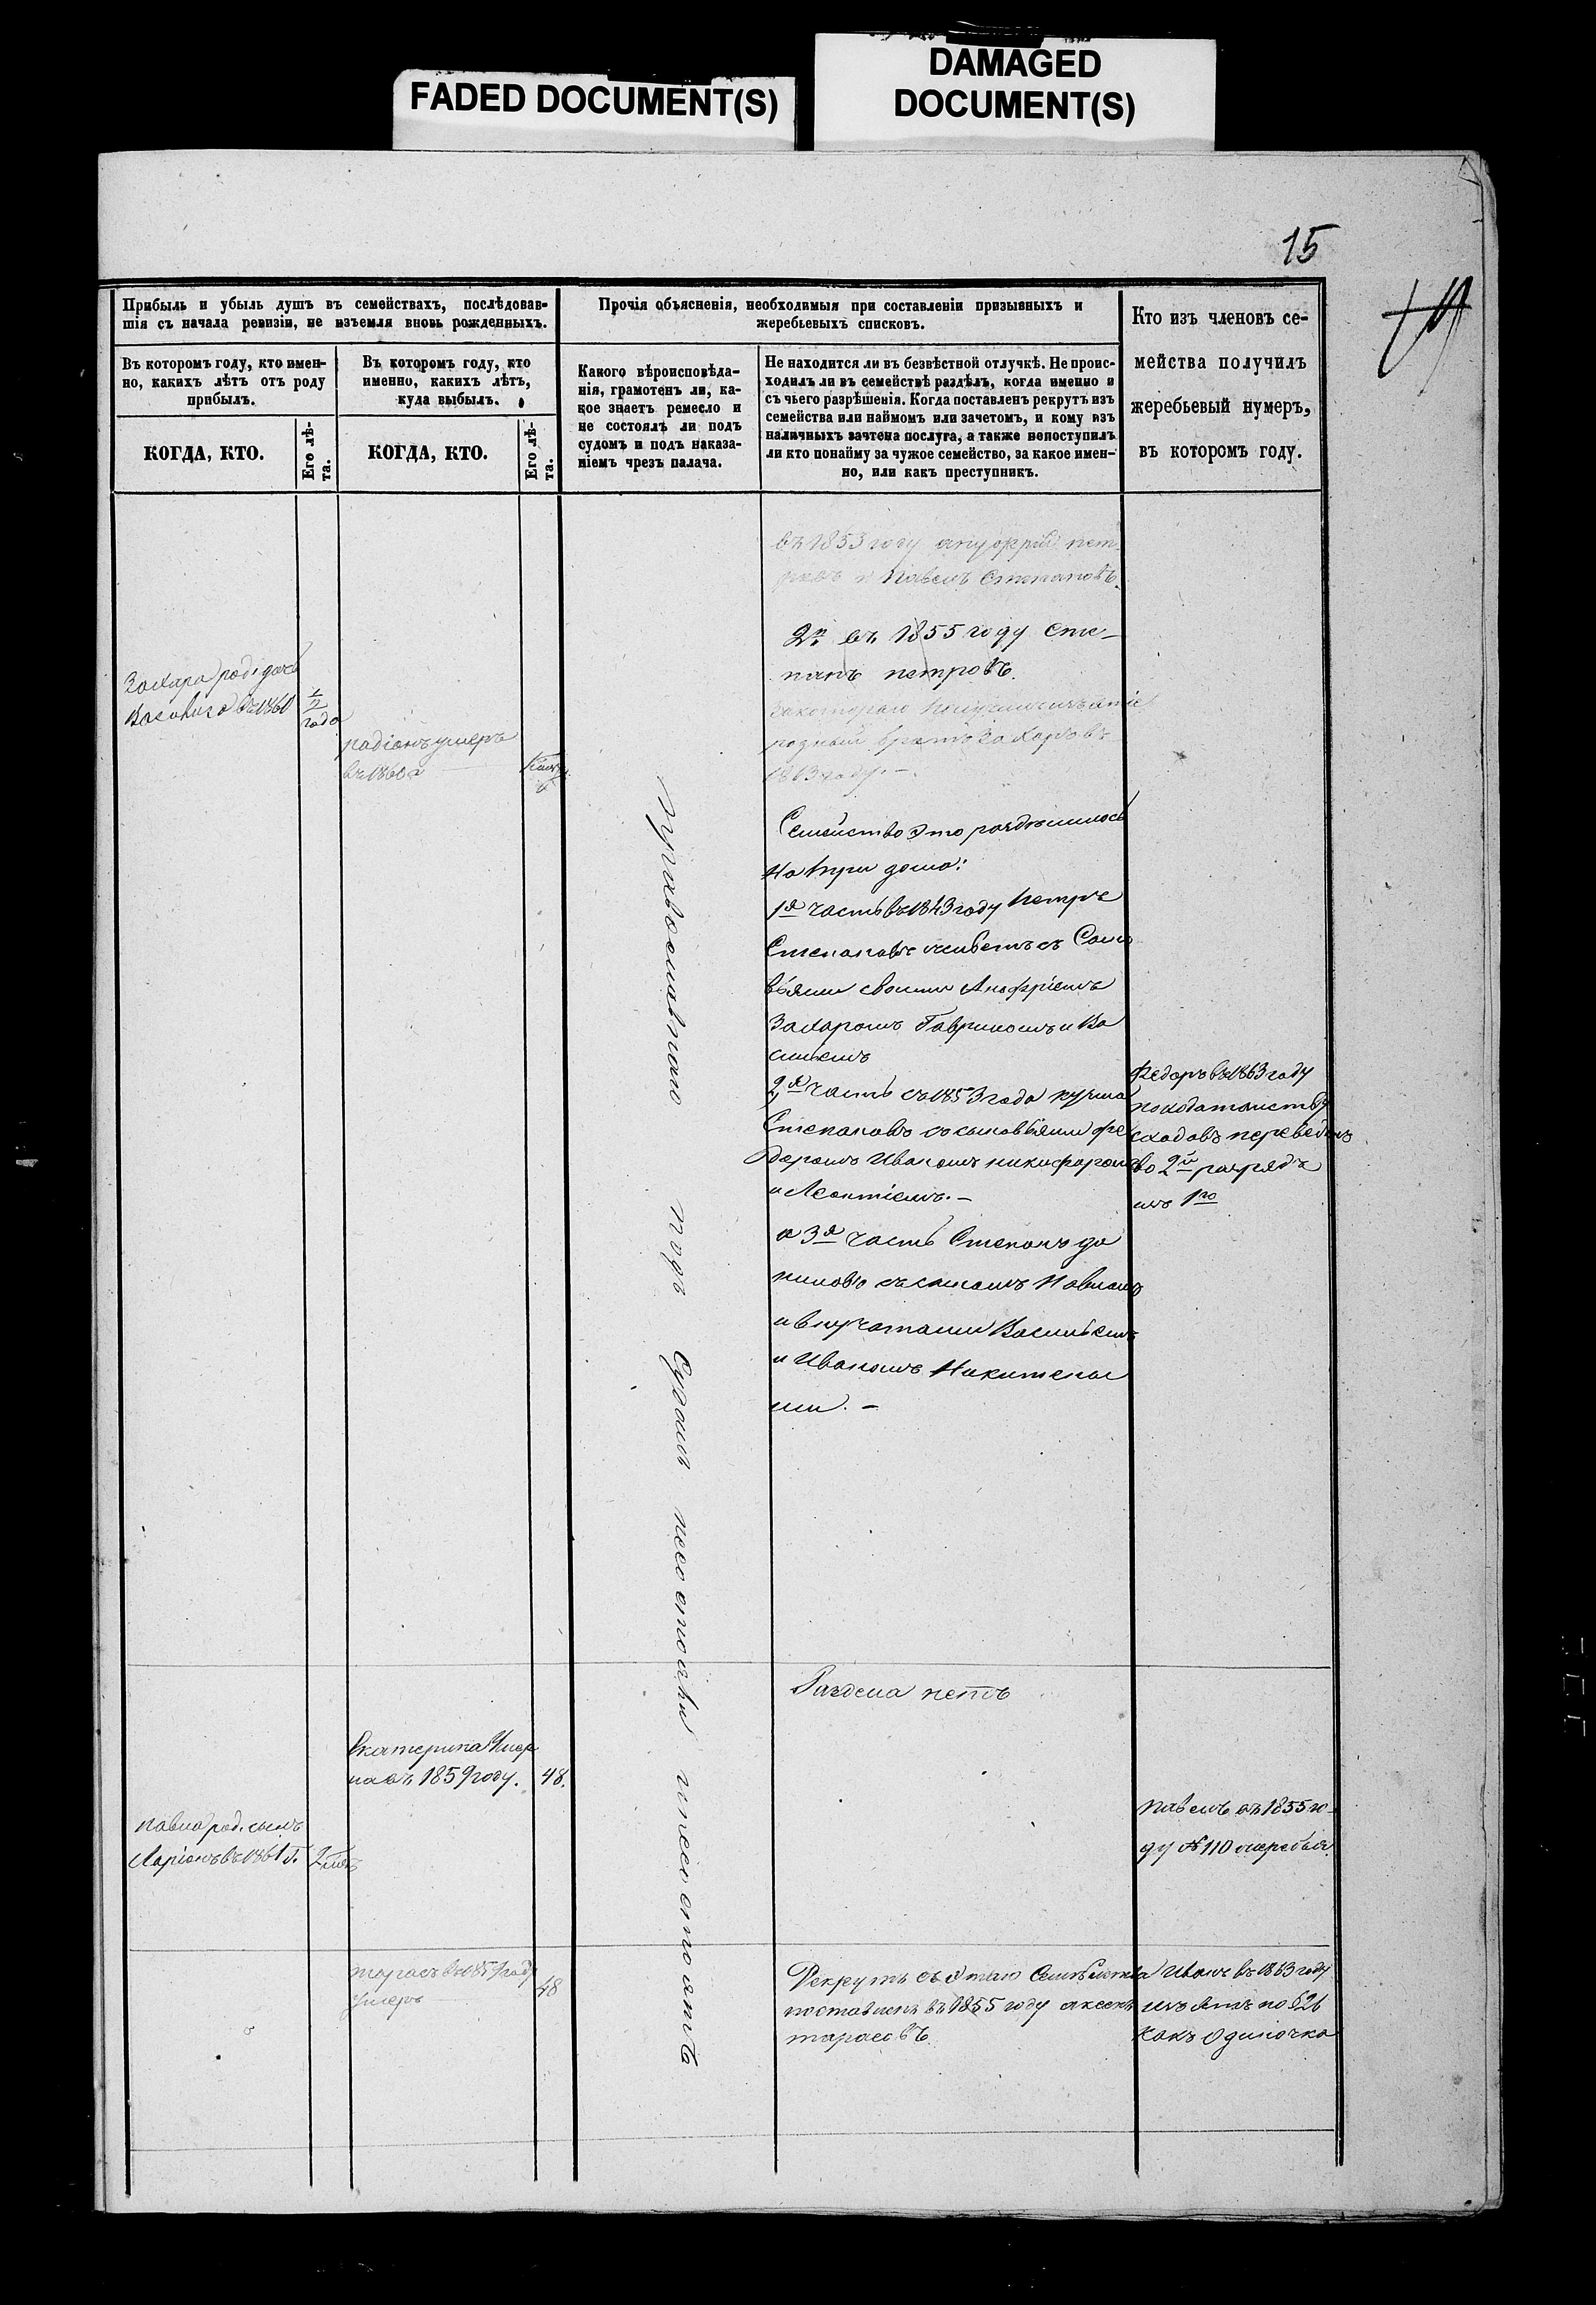 FADED DOCUMENT(S)
DAMAGED
DOCUMENT(S)
15
Прибыль и убыль душъ въ семействахъ, послѣдовав-
шія съ начала ревизіи, не изъемля вновь рожденныхъ.
Въ которомъ году, кто имен-
но, какихъ лѣтъ отъ роду
прибылъ.
КОГДА, КТО.
Его лѣ-
та.
Въ которомъ году, кто
именно, какихъ лѣтъ,
куда выбылъ.
КОГДА, КТО.
Его лѣ-
та.
Прочія объясненія, необходимыя при составленіи призывныхъ и
жеребьевыхъ списковъ.
Какого вѣроисповѣда-
нія, грамотенъ ли, ка-
кое знаетъ ремесло и
не состоялъ ли подъ
судомъ и подъ наказа-
ніемъ чрезъ палача.
Не находится ли въ безвѣстной отлучкѣ. Не проис-
ходилъ ли въ семействѣ раздѣлъ, когда именно и
съ чьего разрѣшенія. Когда поставленъ рекрутъ изъ
семейства или наймомъ или зачетомъ, и кому изъ
наличныхъ зачтена послуга, а также непоступилъ
ли кто понайму за чужое семейство, за какое имен-
но, или какъ преступникъ.
Кто изъ членовъ се-
мейства получилъ
жеребьевый нумеръ,
въ которомъ году.
въ 1853 году ануфрій пет-
ровъ и Павелъ Степановъ.
2й въ 1855 году Сте-
панъ петровъ.
родный братъ Захаръ въ
1863 году. –
Захара род.
въ 1860
1/2
года
радіонъ умеръ
въ 1860 г
Семейство это раздѣлилось
На три дома:
1я часть въ 1843 году Петръ
Степановъ живетъ съ Сыно
вьями своими Анофріемъ
Захаромъ Гавриломъ и Ва
силіемъ
2я часть съ 1853 года кузма
Степановъ съ сыновьями фе
доромъ Иваномъ никифоромъ
и Леонтіемъ. –
а 3я часть Степанъ да
ниловъ съ сыномъ Павломъ
и внучатами Васильемъ
и Иваномъ Никитены
ми. –
православнаго подъ Судомъ несостоялъ
Федоръ въ 1863 году
по ходатайству
сходовъ переведенъ
во 2й разрядъ
изъ 1го
Раздела нетъ
Екатерина Умер
ла въ 1859 году.
48.
павла род. сынъ
Ларіонъ въ 1861 г.
2 лѣтъ
Павелъ въ 1855 го-
ду № 110 жеребья.
тарасъ въ 1859 году
умеръ
48
Рекрутъ съ этаго Семейства
поставленъ въ 1855 году аксенъ
тарасовъ
Иванъ въ 1863 году
изъятъ по § 26
Какъ Одиночка